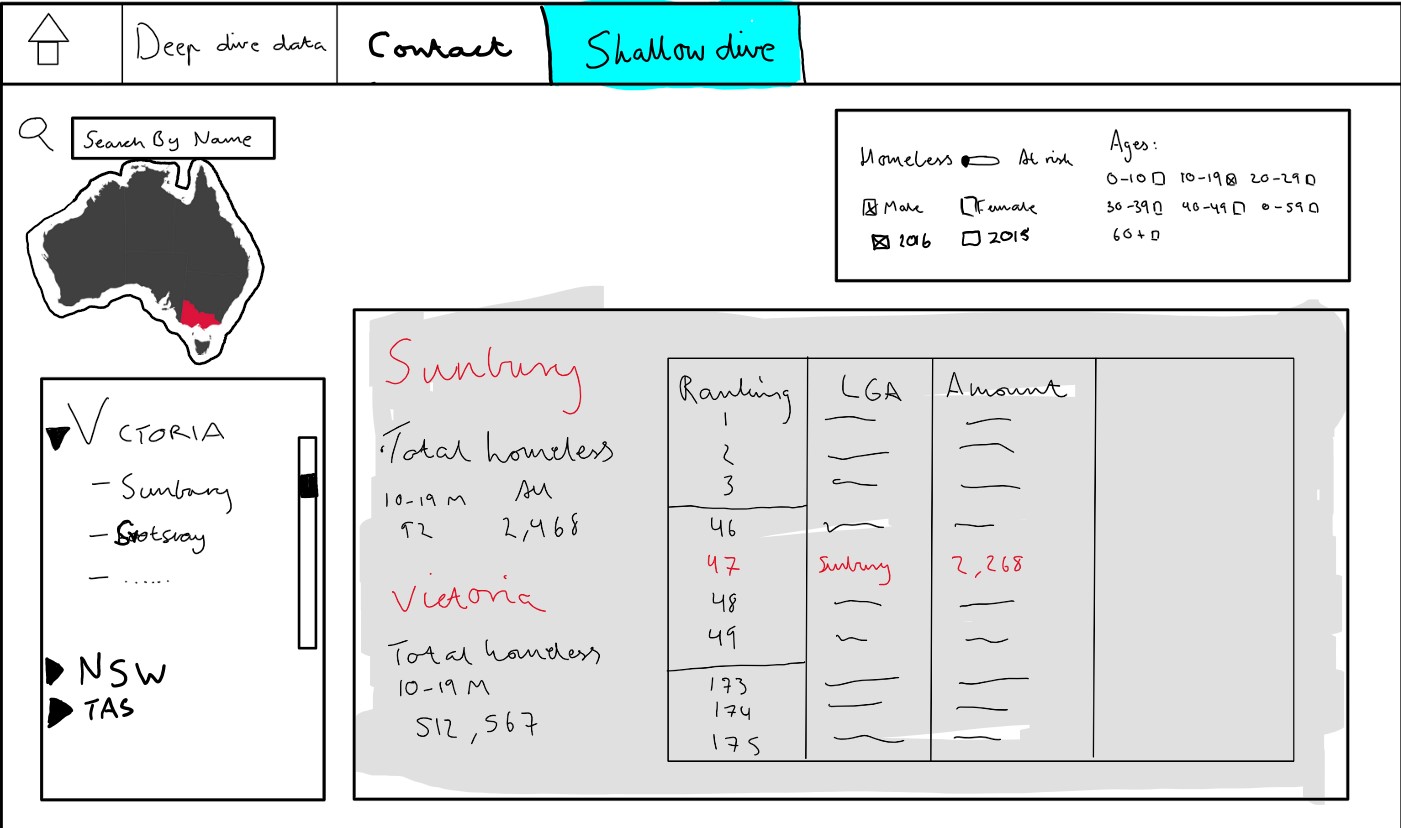 Deep dive data
Contact
Shallow dive
Search By Name
Homeless At risk
Male Female
2016 2018
Ages:
0-10 10-19 20-29
30-39 40-49 0-59
60+
VCTORIA
- Sunbury
- ......
NSW
TAS
Sunbury
Total homeless
10-19 M All
92 2,468
Victoria
Total homeless
10-19 M
512,567
Ranking LGA Amount
1
2
3
46
47 Sunbury 2,268
48
49
173
174
175